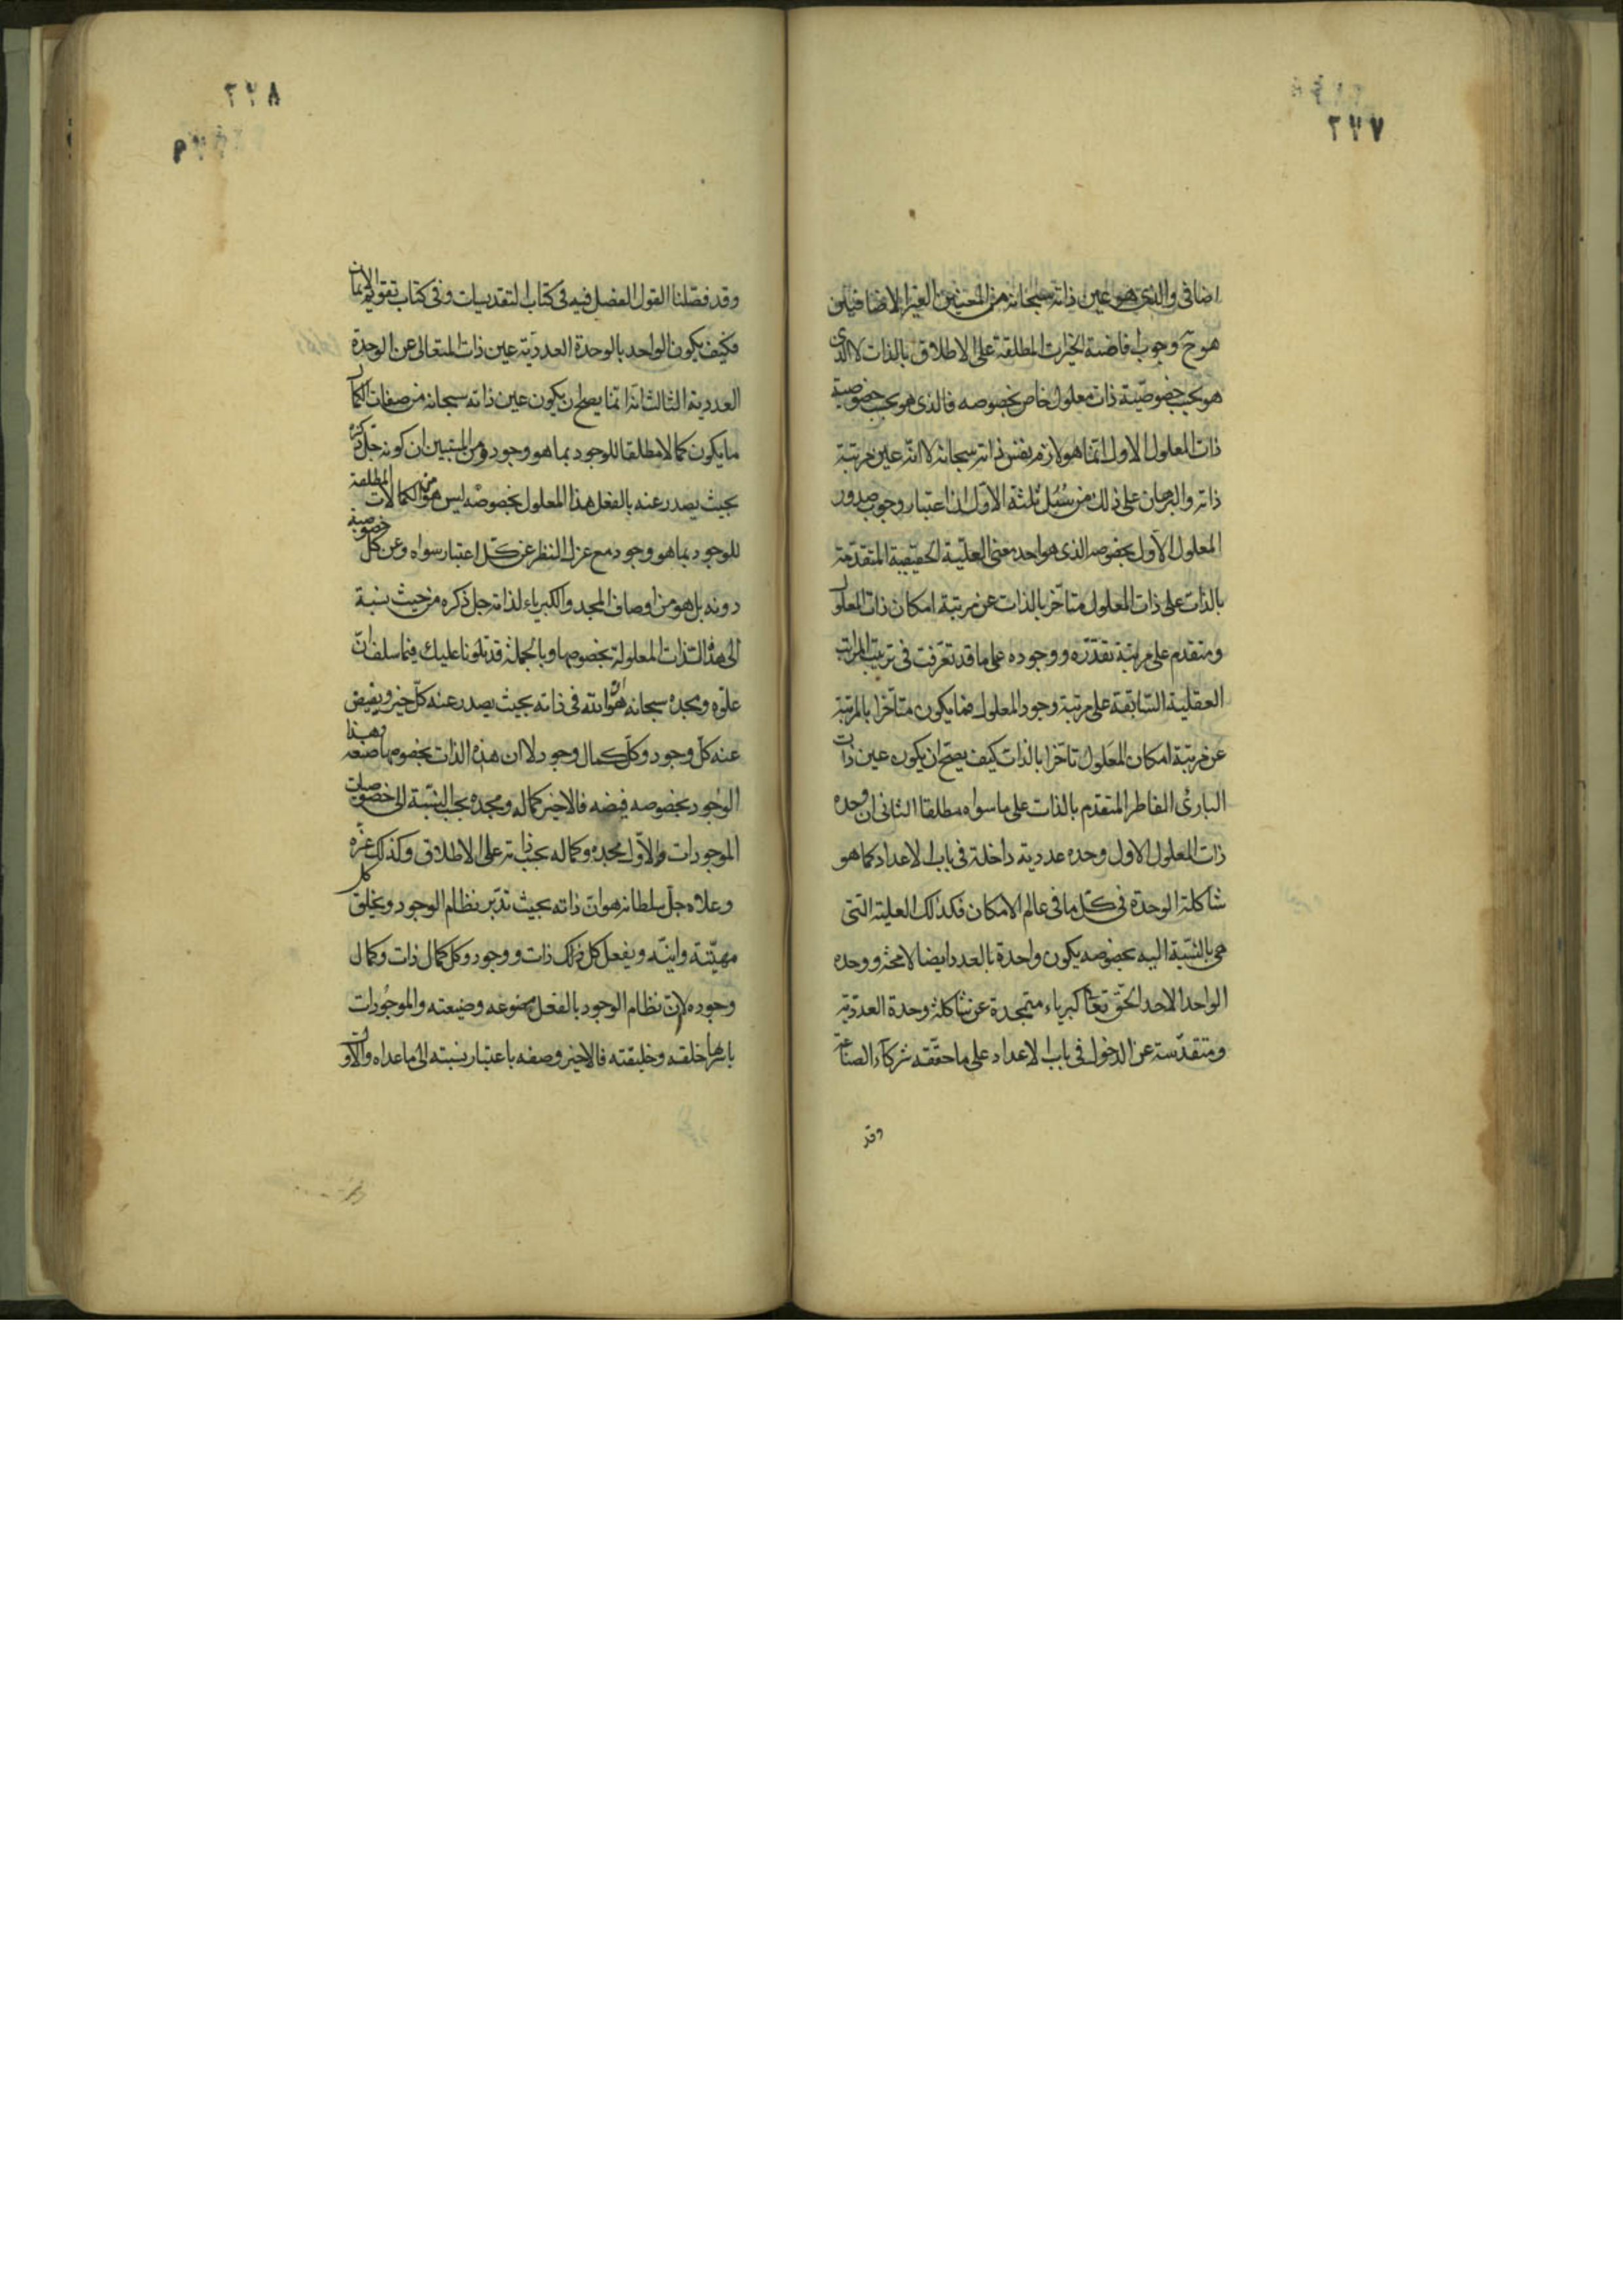 ٢٢٧
اضافى والذى هو عين ذاته سبحانه من المعنيين الغير الاضافيين
هو ح وجوب افاضة الخيرات المطلقة على الاطلاق بالذات لا الذى
هو بحسب خصوصية ذات معلول خاص بخصوصه فالذى هو بحسب خصوصية
ذات المعلول الاول انما هو لازم نفس ذاته سبحانه لا انه عين مرتبة
ذاته والبرهان على ذلك من سبل ثلثة الاول ان اعتبار وجوب صدور
المعلول الاول بخصوصه الذى هو احد معنى العلية الحقيقية المتقدمة
بالذات على ذات المعلول متاخر بالذات عن مرتبة امكان ذات المعلول
ومتقدم على مرتبة تقرره ووجوده على ما قد تعرفت فى ترتيب المراتب
العقلية السابقة على مرتبة وجود المعلول فما يكون متاخرا بالمرتبة
عن مرتبة امكان المعلول تاخرا بالذات كيف يصح ان يكون عين ذات
البارئ الفاطر المتقدم بالذات على ما سواه مطلقا الثانى ان وحدة
ذات المعلول الاول وحده عددية داخلة فى باب الاعداد كما هو
شاكلة الوحدة فى كل ما فى عالم الامكان فكذلك العلية التى
هى بالنسبة اليه بخصوصه يكون واحدة بالعدد ايضا لا محة ووحده
الواحد الاحد الحق تعا كبرياء متمجدة عن شاكلة وحدة العددية
ومتقدسة عن الدخول فى باب الاعداد على ما حققه شركاء الصناعة
وقد
٢٢٨
وقد فصلنا القول الفصل فيه فى كتاب التقديسات وفى كتاب تقويم الايمان
فكيف يكون الواحد بالوحدة العددية عين ذات المتعالى عن الوحدة
العددية الثالث انه انما يصلح ان يكون عين ذاته سبحانه من صفات الكمال
ما يكون كمالا مطلقا للوجود بما هو وجود ومن المتبين ان كونه جل ذكره
بحيث يصدر عنه بالفعل هذا المعلول بخصوصه ليس هو من الكمالات المطلقة
للوجود بما هو وجود مع عزل النظر عن كل اعتبار سواه وعن كل خصوصية
دونه بل هو من اوصاف المجد والكبرياء لذاته جل ذكره من حيث نسبة
الى هذه الذات المعلولة بخصوصها وبالجملة قد تلونا عليك فيما سلف ان
علوه ومجده سبحانه هو انه فى ذاته بحيث يصدر عنه كل خير ويفيض
عنه كل وجود وكل كمال وجود لا ان هذه الذات بخصوصها صنعه وهذا
الوجود بخصوصه فيضه فالاخير كماله ومجده بحسب النسبة الى خصوصيات
الموجودات والاول مجده وكماله بحسب ذاته على الاطلاق وكذلك عزه
وعلاه جل سلطانه هو ان ذاته بحيث تدبر نظام الوجود ويخلق كل
مهية وانية ويفعل كل ذات ووجود وكل كمال ذات وكمال
وجوده لان نظام الوجود بالفعل مصنوعه وصنيعته والموجودات
باسرها خلقه وخليقته فالاخير وصفه باعتبار نسبته الى ما عداه والاول